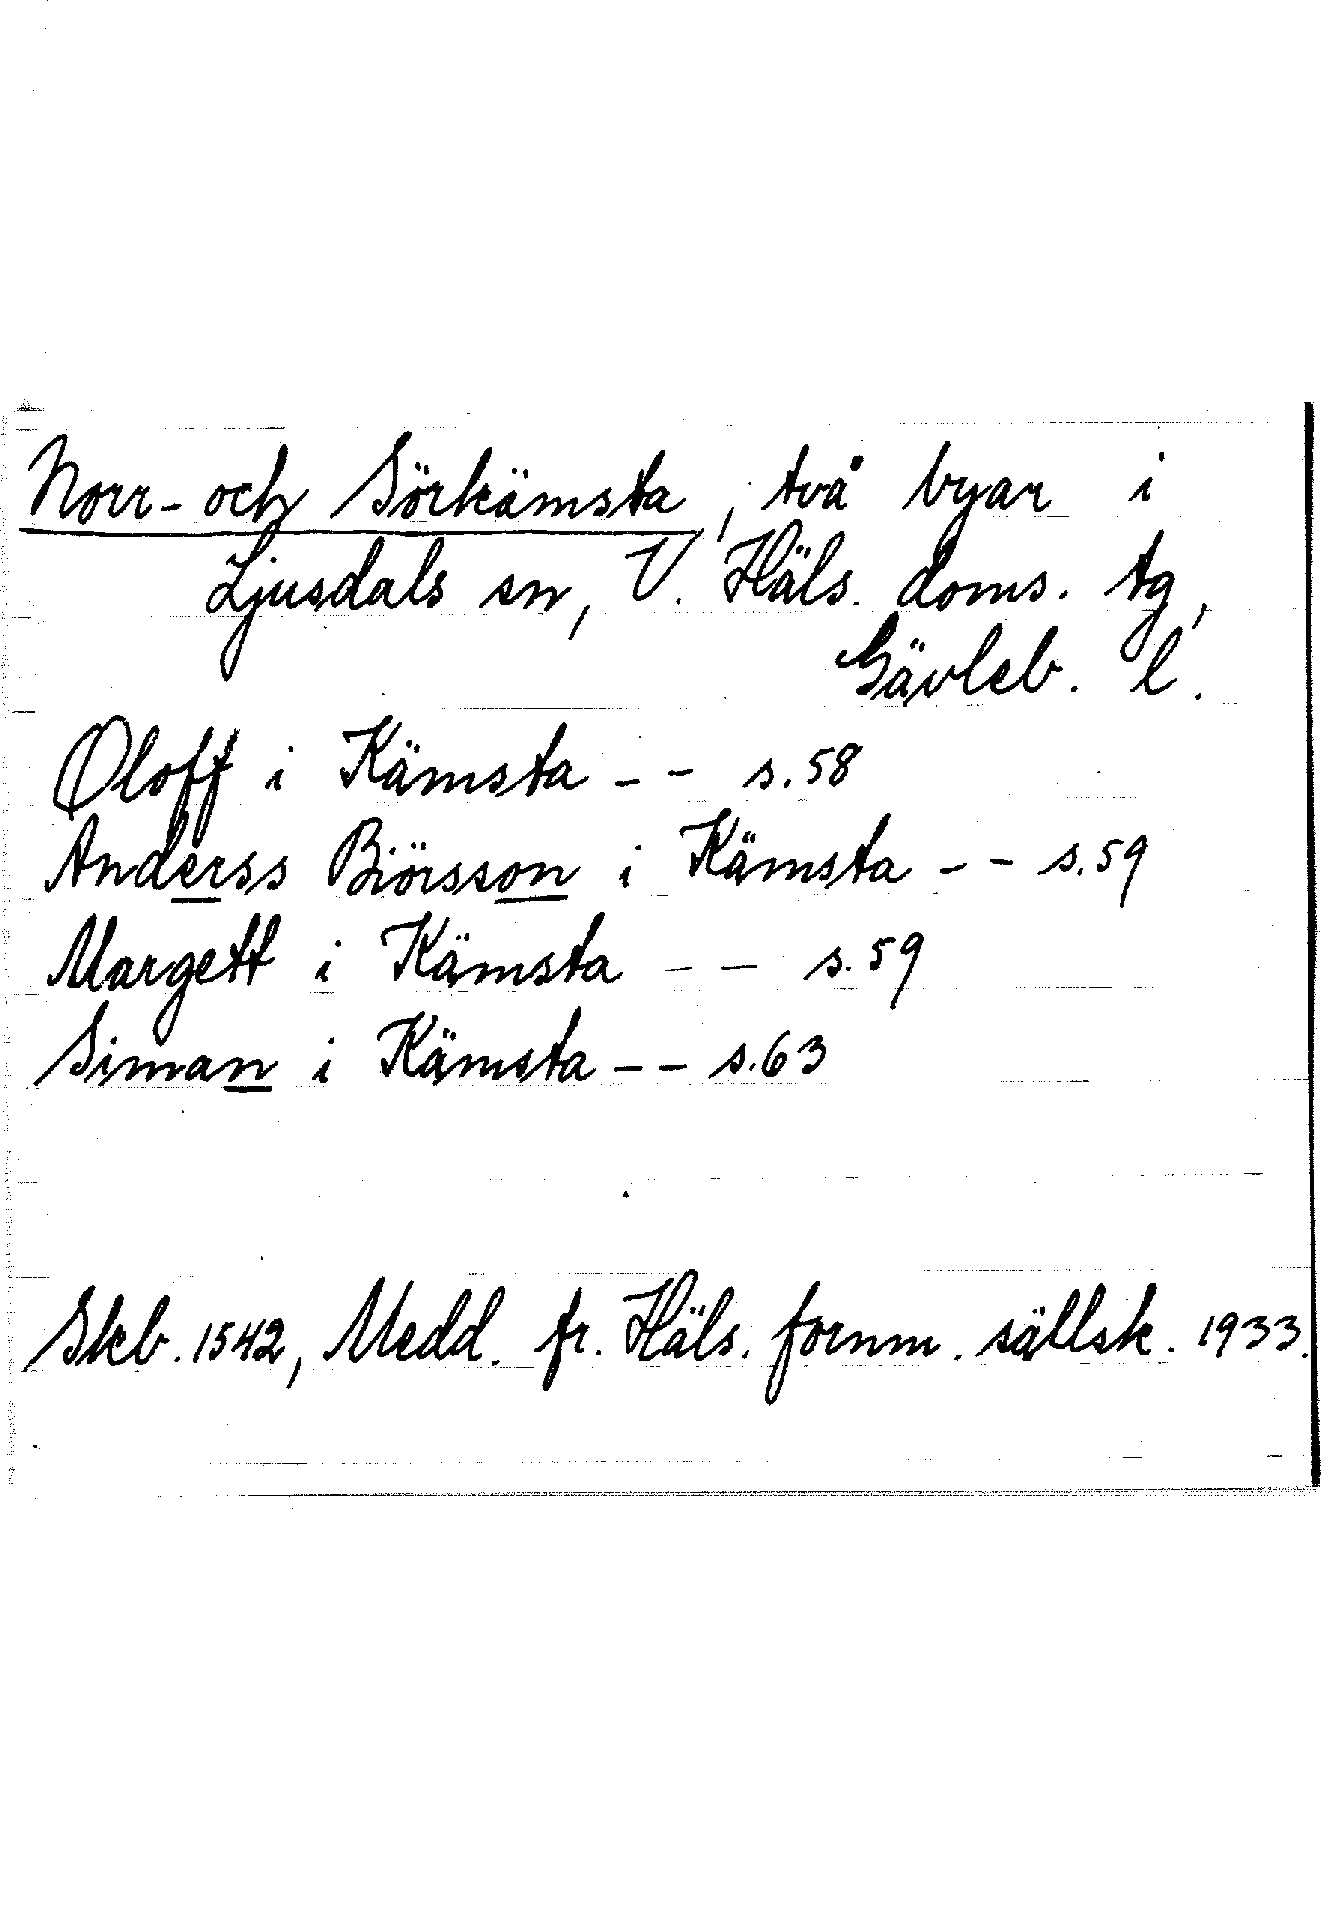 Norr- och Sörkämsta, två byar i
Ljusdals sn, V. Häls. doms. tg,
Gävleb. l.
Oloff i Kämsta -- s. 58
Anderss Biörsson i Kämsta -- s. 59
Margett i Kämsta -- s. 59
Siman i Kämsta -- s. 63
Skb. 1542, Medd. fr. Häls. fornm. sällsk. 1933.